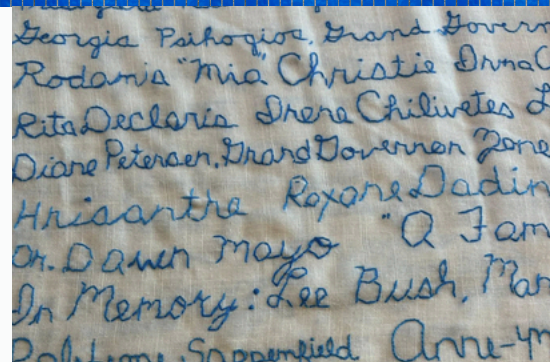 Georgia Psihogios, Grand Govern
Rodanis "Mia" Christie Irma C
Rita Declaris Irene Chilivetes L
Diane Petersen, Grand Governor Zone
Hrisanthe Roxane Dadin
Dr. Dawn Mayo "A Fam
In Memory: Lee Bush, Mar
Sappenfield Anne-M